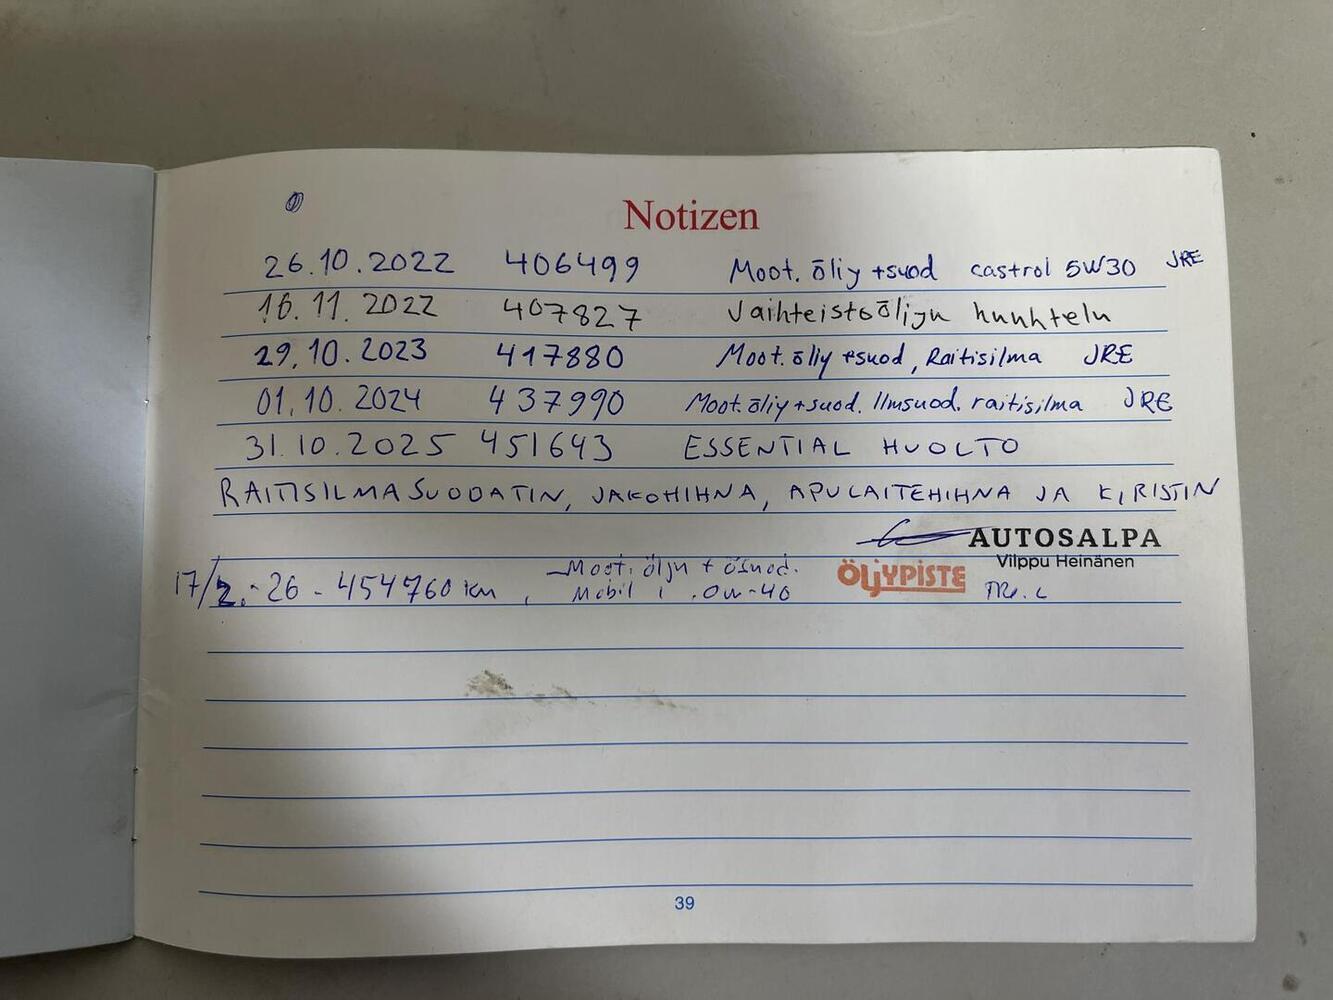 Notizen
26.10.2022 406499 Moot. öljy +suod castrol 5W30 JRE
16.11.2022 407827 Vaihteistoöljyn huuhtelu
29.10.2023 417880 Moot. öljy +suod, Raitisilma JRE
01.10.2024 437990 Moot. öljy +suod. Ilmsuod. raitisilma JRE
31.10.2025 451643 ESSENTIAL HUOLTO
RAITISILMASUODATIN, JAKOHIHNA, APULAITEHIHNA JA KIRISTIN
AUTOSALPA
Vilppu Heinänen
17/2.-26 - 454760 km, Moot. öljy + ösuod.
Mobil 1 .0w-40
ÖLJYPISTE
39